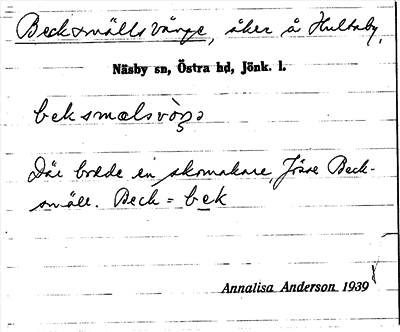 Becksmälls vånge, åker å Hultaby,
Näsby sn, Östra hd, Jönk. l.
beksmælsvòŋə
Där bodde en skomakare, Jösse Beck-
smäll. Beck = bek
Annalisa Anderson 1939